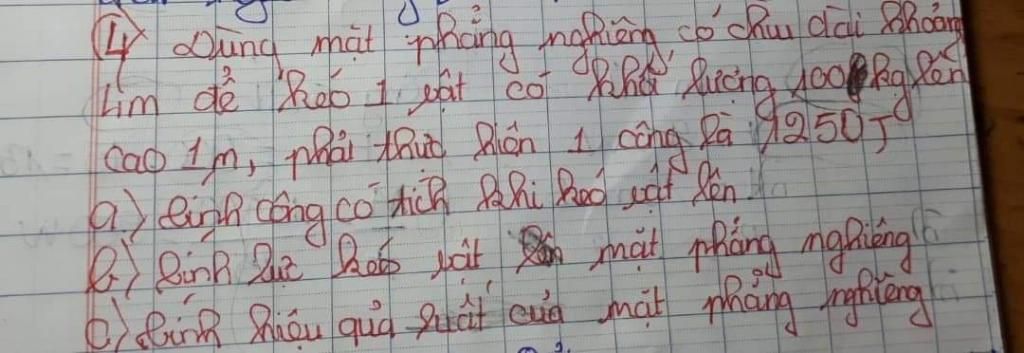 4) Dùng mặt phẳng nghiêng có chiều dài khoảng
4m để kéo 1 vật có khối lượng 100kg lên
cao 1m, phải thực hiện 1 công là 1250J
a) tính công có ích khi kéo vật lên
b) tính lực kéo vật lên mặt phẳng nghiêng
c) tính hiệu quả suất của mặt phẳng nghiêng